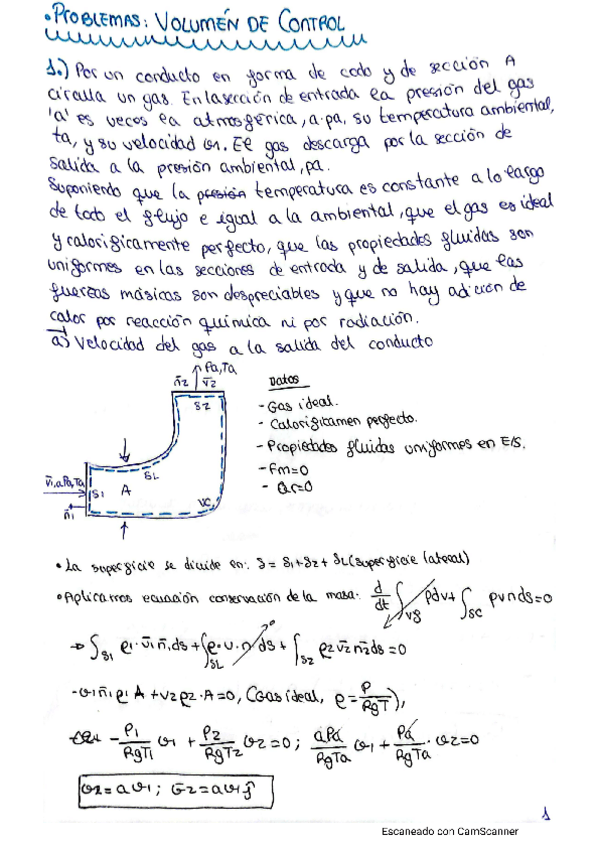 • PROBLEMAS: VOLUMÉN DE CONTROL
1.) Por un conducto en forma de codo y de sección A
circula un gas. En la sección de entrada la presión del gas
'a' es veces la atmosférica, a·pa, su temperatura ambiental,
ta, y su velocidad v1. El gas descarga por la sección de
salida a la presión ambiental, pa.
Suponiendo que la presión temperatura es constante a lo largo
de todo el flujo e igual a la ambiental, que el gas es ideal
y calorificamente perfecto, que las propiedades fluidas son
uniformes en las secciones de entrada y de salida, que las
fuerzas másicas son despreciables y que no hay adición de
calor por reacción química ni por radiación.
a) Velocidad del gas a la salida del conducto
Pa,Ta
n̄2 v̄2
S2
SL
v̄1,aPa,Ta
S1
A
VC
n̄1
Datos
- Gas ideal.
- Calorificamen perfecto.
- Propiedades fluidas uniformes en E/S.
- Fm=0
- Qr=0
• La superficie se divide en: S = S1+S2+SL (superficie lateral)
• Aplicamos ecuación conservación de la masa: d/dt ∫VC ρdv + ∫SC ρvnds=0
→ ∫S1 ρ1·v̄1 n̄1 ds + ∫SL ρ·v·n ds + ∫S2 ρ2 v̄2 n̄2 ds = 0
-v1 n̄1 ρ1 A + v2 ρ2·A = 0, (Gas ideal, ρ = P/RgT),
- P1/RgT1 v1 + P2/RgT2 v2 = 0; aPa/RgTa v1 + Pa/RgTa · v2 = 0
v2 = a v1; v̄2 = a v1 j̄
1
Escaneado con CamScanner